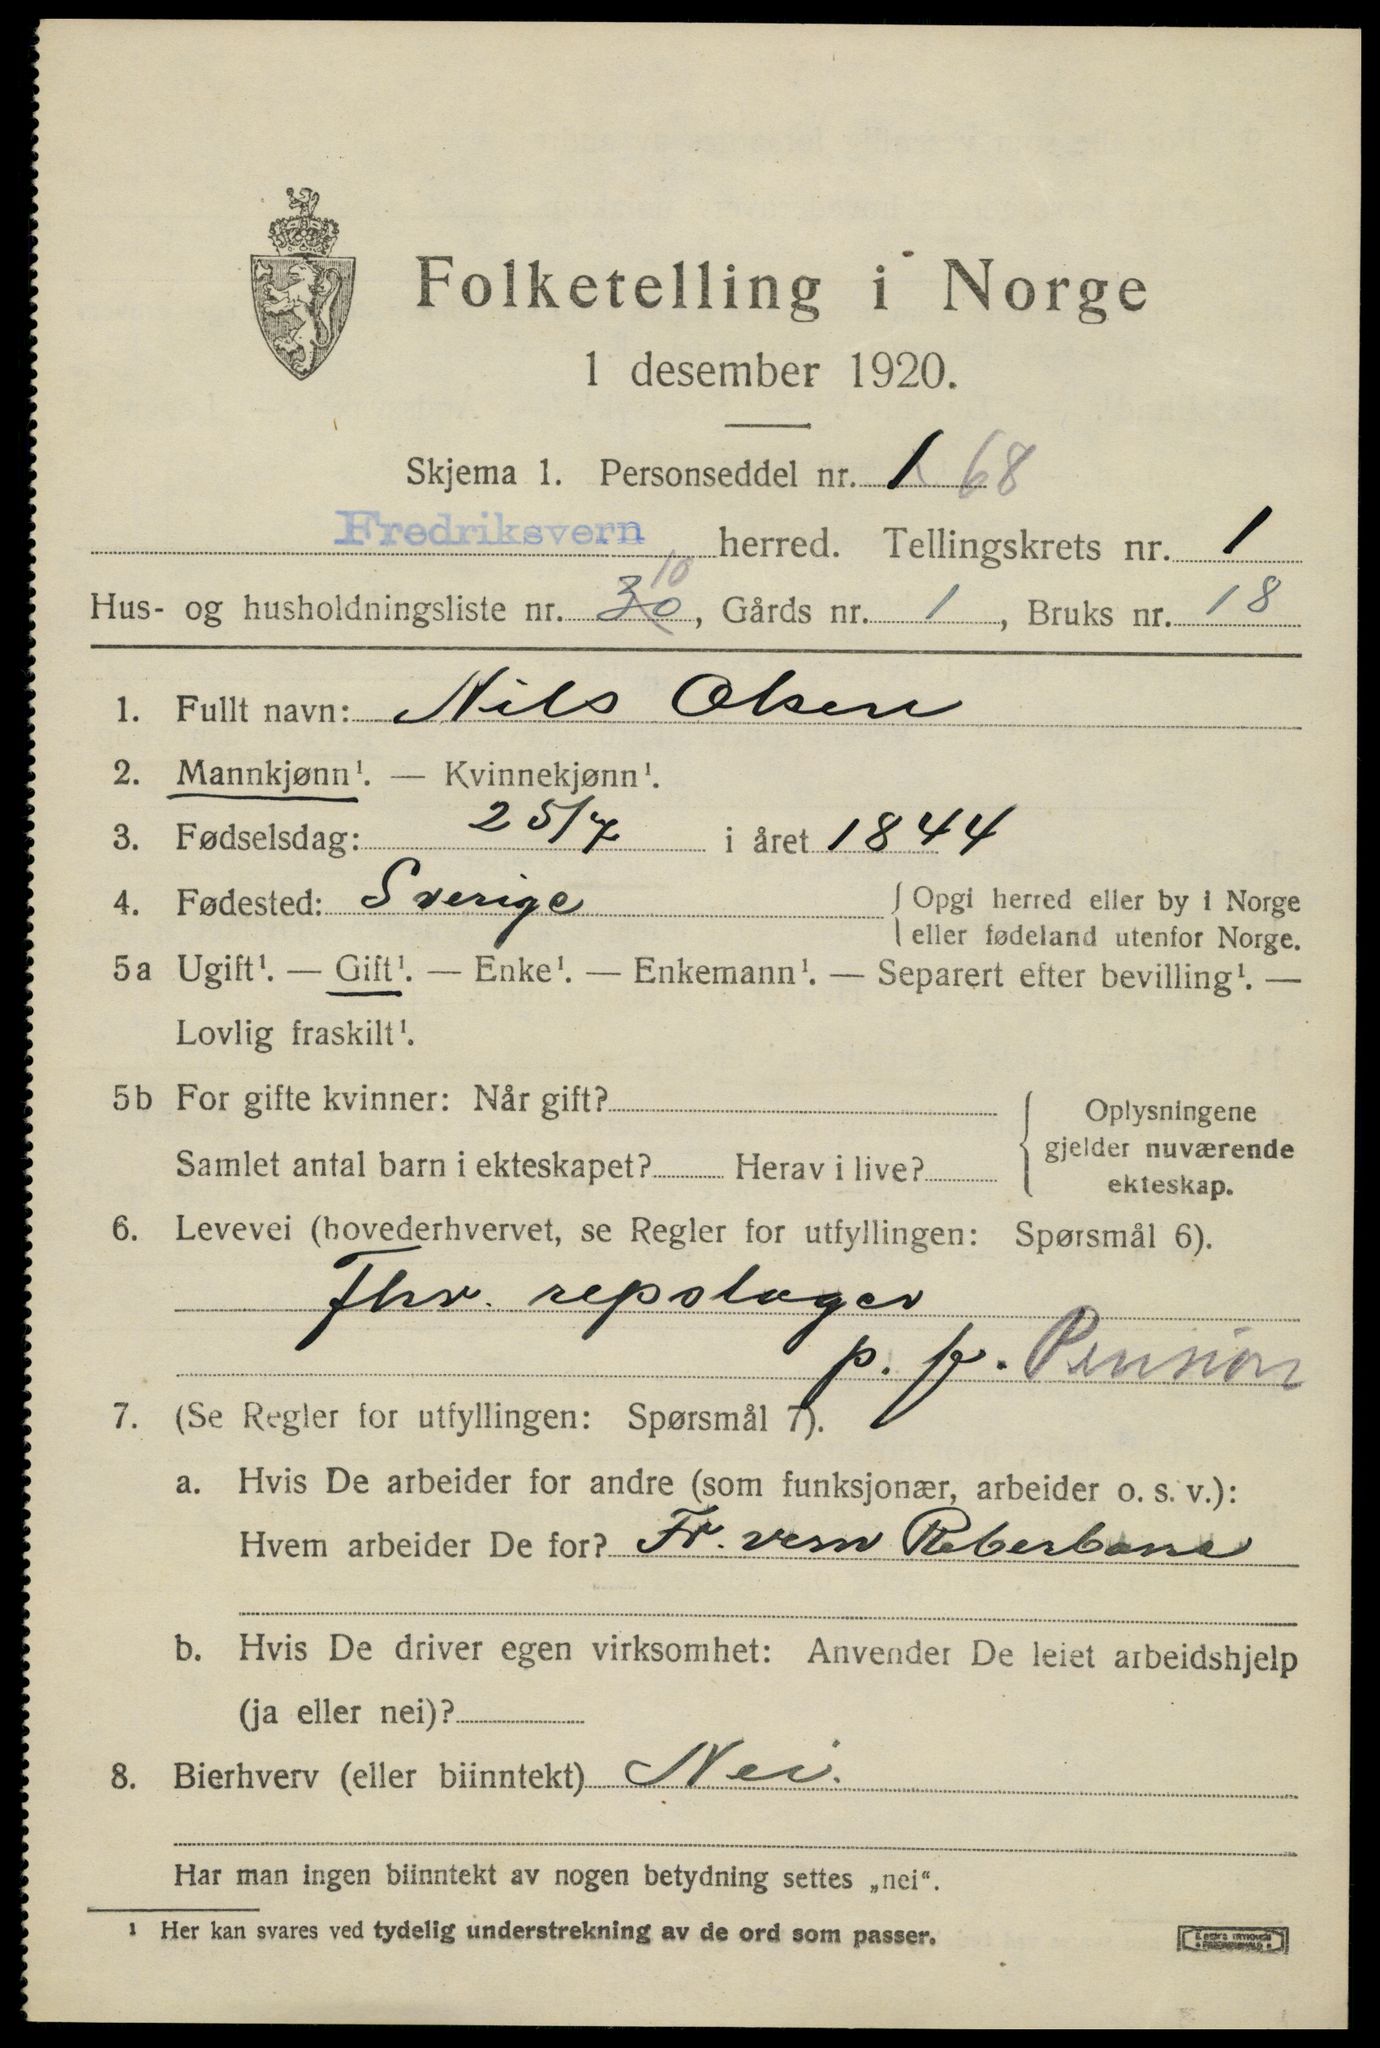 Folketelling i Norge
1 desember 1920.
Skjema 1. Personseddel nr. 1 68
Fredriksvern herred. Tellingskrets nr. 1
10
Hus- og husholdningsliste nr. 30, Gårds nr. 1, Bruks nr. 18
1. Fullt navn: Nils Olsen
2. Mannkjønn¹. — Kvinnekjønn¹.
3. Fødselsdag: 25/7 i året 1844
4. Fødested: Sverige { Opgi herred eller by i Norge
eller fødeland utenfor Norge.
5a Ugift¹. — Gift¹. — Enke¹. — Enkemann¹. — Separert efter bevilling¹. —
Lovlig fraskilt¹.
5b For gifte kvinner: Når gift?
Samlet antal barn i ekteskapet? Herav i live?
{ Oplysningene
gjelder nuværende
ekteskap.
6. Levevei (hovederhvervet, se Regler for utfyllingen: Spørsmål 6).
Fhv. repslager
p. p. Pension
7. (Se Regler for utfyllingen: Spørsmål 7).
a. Hvis De arbeider for andre (som funksjonær, arbeider o. s. v.):
Hvem arbeider De for? Fr. vern Reberbane
b. Hvis De driver egen virksomhet: Anvender De leiet arbeidshjelp
(ja eller nei)?
8. Bierhverv (eller biinntekt) Nei.
Har man ingen biinntekt av nogen betydning settes „nei“.
¹ Her kan svares ved tydelig understrekning av de ord som passer.